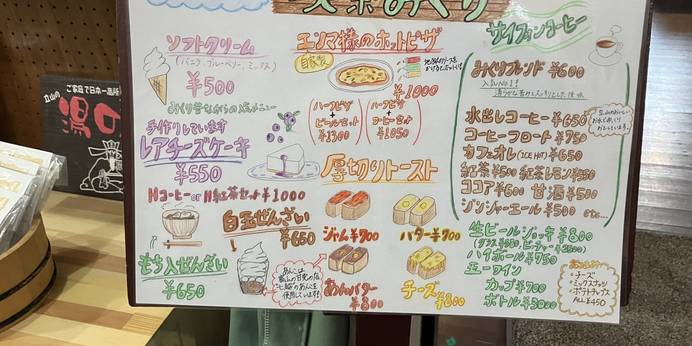 喫茶みくり
ソフトクリーム
(バニラ、ブルーベリー、ミックス)
¥500
手作りしています
レアチーズケーキ
¥550
Hコーヒー or H紅茶セット¥1000
白玉ぜんざい
¥650
もち入ぜんざい
¥650
エンマ様のホットピザ
自家製
¥1000
ハーフピザ
+
ビールセット
¥1300
ハーフピザ
コーヒーセット
¥1050
厚切りトースト
ジャム¥700
バター¥700
あんバター
¥800
チーズ¥800
あんこは
使用しています!!
サイフォンコーヒー
みくりブレンド ¥600
人気NO1!
水出しコーヒー¥650
コーヒーフロート ¥750
カフェオレ(ICE HOT) ¥650
紅茶¥500 紅茶レモン¥500
ココア¥600 甘酒¥500
ジンジャーエール¥500 etc...
生ビールジョッキ¥800
ハイボール¥750
カップ¥700
ボトル¥3000
・チーズ
・ミックスナッツ
・ポテトチップス
ALL ¥450
立山の
ご家庭で日本一高所
湯の